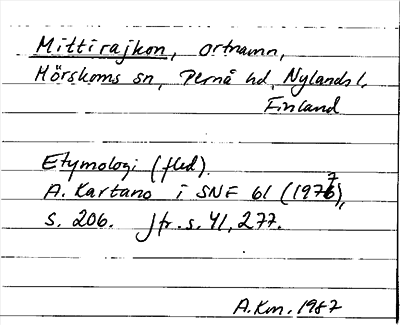 Mittirajkon, ortnamn,
Mörskoms sn, Pernå hd, Nylands l.
Finland
Etymologi (fled).
A. Kartano i SNF 61 (1977),
s. 206. Jfr. s. 41, 277.
A.Km. 1987